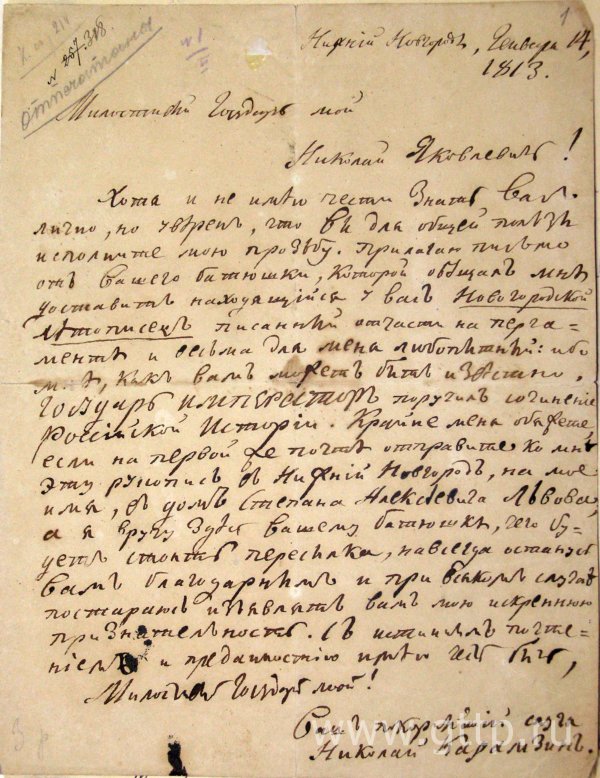 1
№ 267.318
отпечатана
Нижній Новгородъ, Генваря 14,
1813.
Милостивый Государь мой
Николай Яковлевичь!
Хотя и не имѣю чести знать Васъ
лично, но увѣренъ, что вы для общей пользы
исполните мою прозьбу. Прилагаю письмо
отъ вашего батюшки, которой обѣщалъ мнѣ
доставить находящійся у васъ Новогородской
Лѣтописецъ писанный отчасти на перга-
ментѣ и весьма для меня любопытный: ибо
мнѣ, какъ вамъ можетъ быть извѣстно,
Государь Императоръ поручилъ сочиненіе
Россійской Исторіи. Крайне меня обяжете,
если на первой же почтѣ отправите ко мнѣ
эту рукопись въ Нижній Новгородъ, на мое
имя, въ домъ Степана Алексѣевича Львова,
а я вручу здѣсь вашему батюшкѣ, чего бу-
детъ стоить пересылка, навсегда останусь
вамъ благодарнымъ и при всякомъ случаѣ
постараюсь изъявлять вамъ мою искреннюю
признательность. Съ истиннымъ почте-
ніемъ и преданностію имѣю честь быть,
Милостивый Государь мой!
Вашъ покорнѣйшій слуга
Николай Карамзинъ.
www.gttp.ru